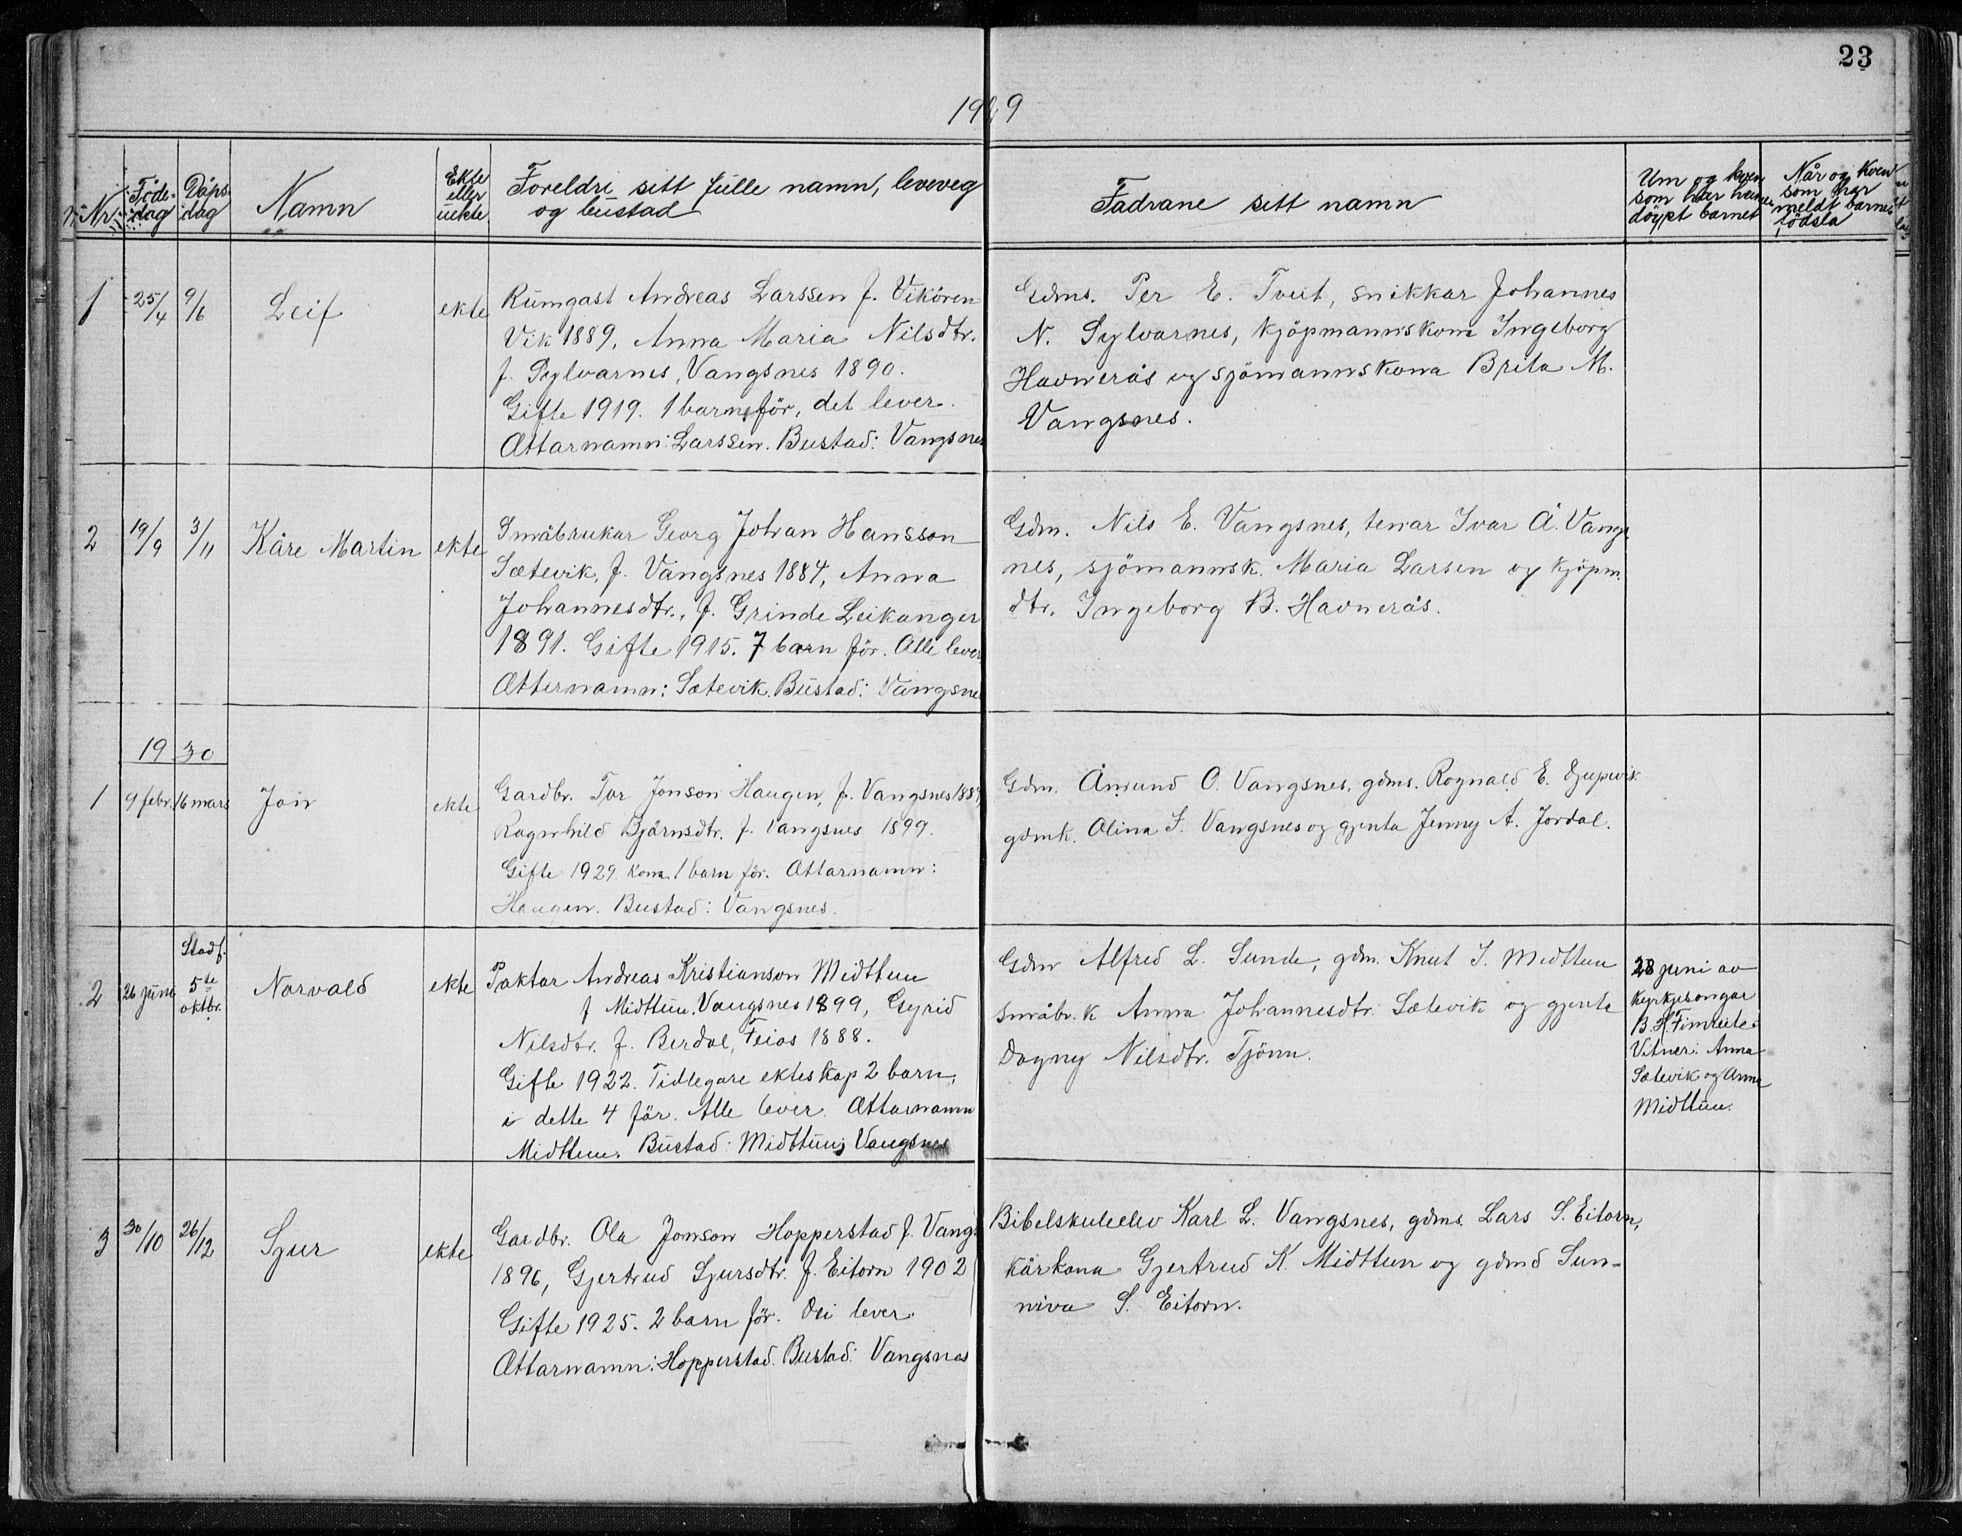 23
1929
Nr.
Föde-
dag
Døps-
dag
Namn
Ekte
eller
uekte
Foreldri sitt fulle namn, leveveg
og bustad
Fadrane sitt namn
Um og kven
som har heime-
døypt barnet
Når og kven
som har
meldt barne-
fødsla
1 25/4 9/6 Leif ekte
Rumgast Andreas Larssen f. Vikören
Vik 1889, Anna Maria Nilsdtr.
f. Sylvarnes, Vangsnes 1890.
Gifte 1919. 1 barn för, det lever.
Ættarnamn: Larssen. Bustad: Vangsnes
Gdms. Per E. Tveit, snikkar Johannes
N. Sylvarnes, kjöpmannskona Ingeborg
Havnerås og sjömannskona Brita M.
Vangsnes.
2 19/9 3/11 Kåre Martin ekte
Småbrukar Georg Johan Hansson
Sætevik, f. Vangsnes 1884, Anna
Johannesdtr., f. Grinde Leikanger
1891. Gifte 1915. 7 barn för. Alle lever
Ætternamn: Sætevik. Bustad: Vangsne
Gdm. Nils E. Vangsnes, tenar Ivar Å. Vangs
nes, sjömannsk. Maria Larsen og kjöpm.
dtr. Ingeborg B. Havnerås.
1930
1 9 febr. 16 mars Jon ekte
Gardbr. Tor Jonson Haugen, f. Vangsnes 188
Ragnhild Björnsdtr. f. Vangsnes 1899.
Gifte 1929. Kona 1 barn för. Ættarnamn:
Haugen. Bustad: Vangsnes.
Gdm. Åmund O. Vangsnes, gdms. Rognald E. Djupevik
gdmk. Olina S. Vangsnes og gjenta Jenny A. Jordal.
2 26 juni
Stadf.
5te
oktbr.
Norvald ekte
Paktar Andreas Kristianson Midttun
f Midttun, Vangsnes 1899, Gyrid
Nilsdtr. f. Berdal, Feios 1888.
Gifte 1922. Tidlegare ekteskap 2 barn,
i dette 4 för. Alle lever. Ættarnamn
Midttun. Bustad: Midttun, Vangsnes
Gdm Alfred L. Sunde, gdm. Knut J. Midttun
småbr.k Anna Johannesdtr. Sætevik og gjenta
Dagny Nilsdtr. Tjönn.
28 juni av
kyrkjesongar
B. H. Fimreite.
Vitner: Anna
Sætevik og Anna
Midttun.
3 30/10 26/12 Sjur ekte
Gardbr. Ola Jonson Hopperstad f. Vangs
1896, Gjertrud Sjursdtr. f. Eitorn 1902
Gifte 1925. 2 barn för. Dei lever
Ættarnamn: Hopperstad. Bustad: Vangsnes
Bibelskuleelev Karl L. Vangsnes, gdms. Lars S. Eitorn,
kårkona Gjertrud K. Midttun og gdmd Sun-
niva S. Eitorn.